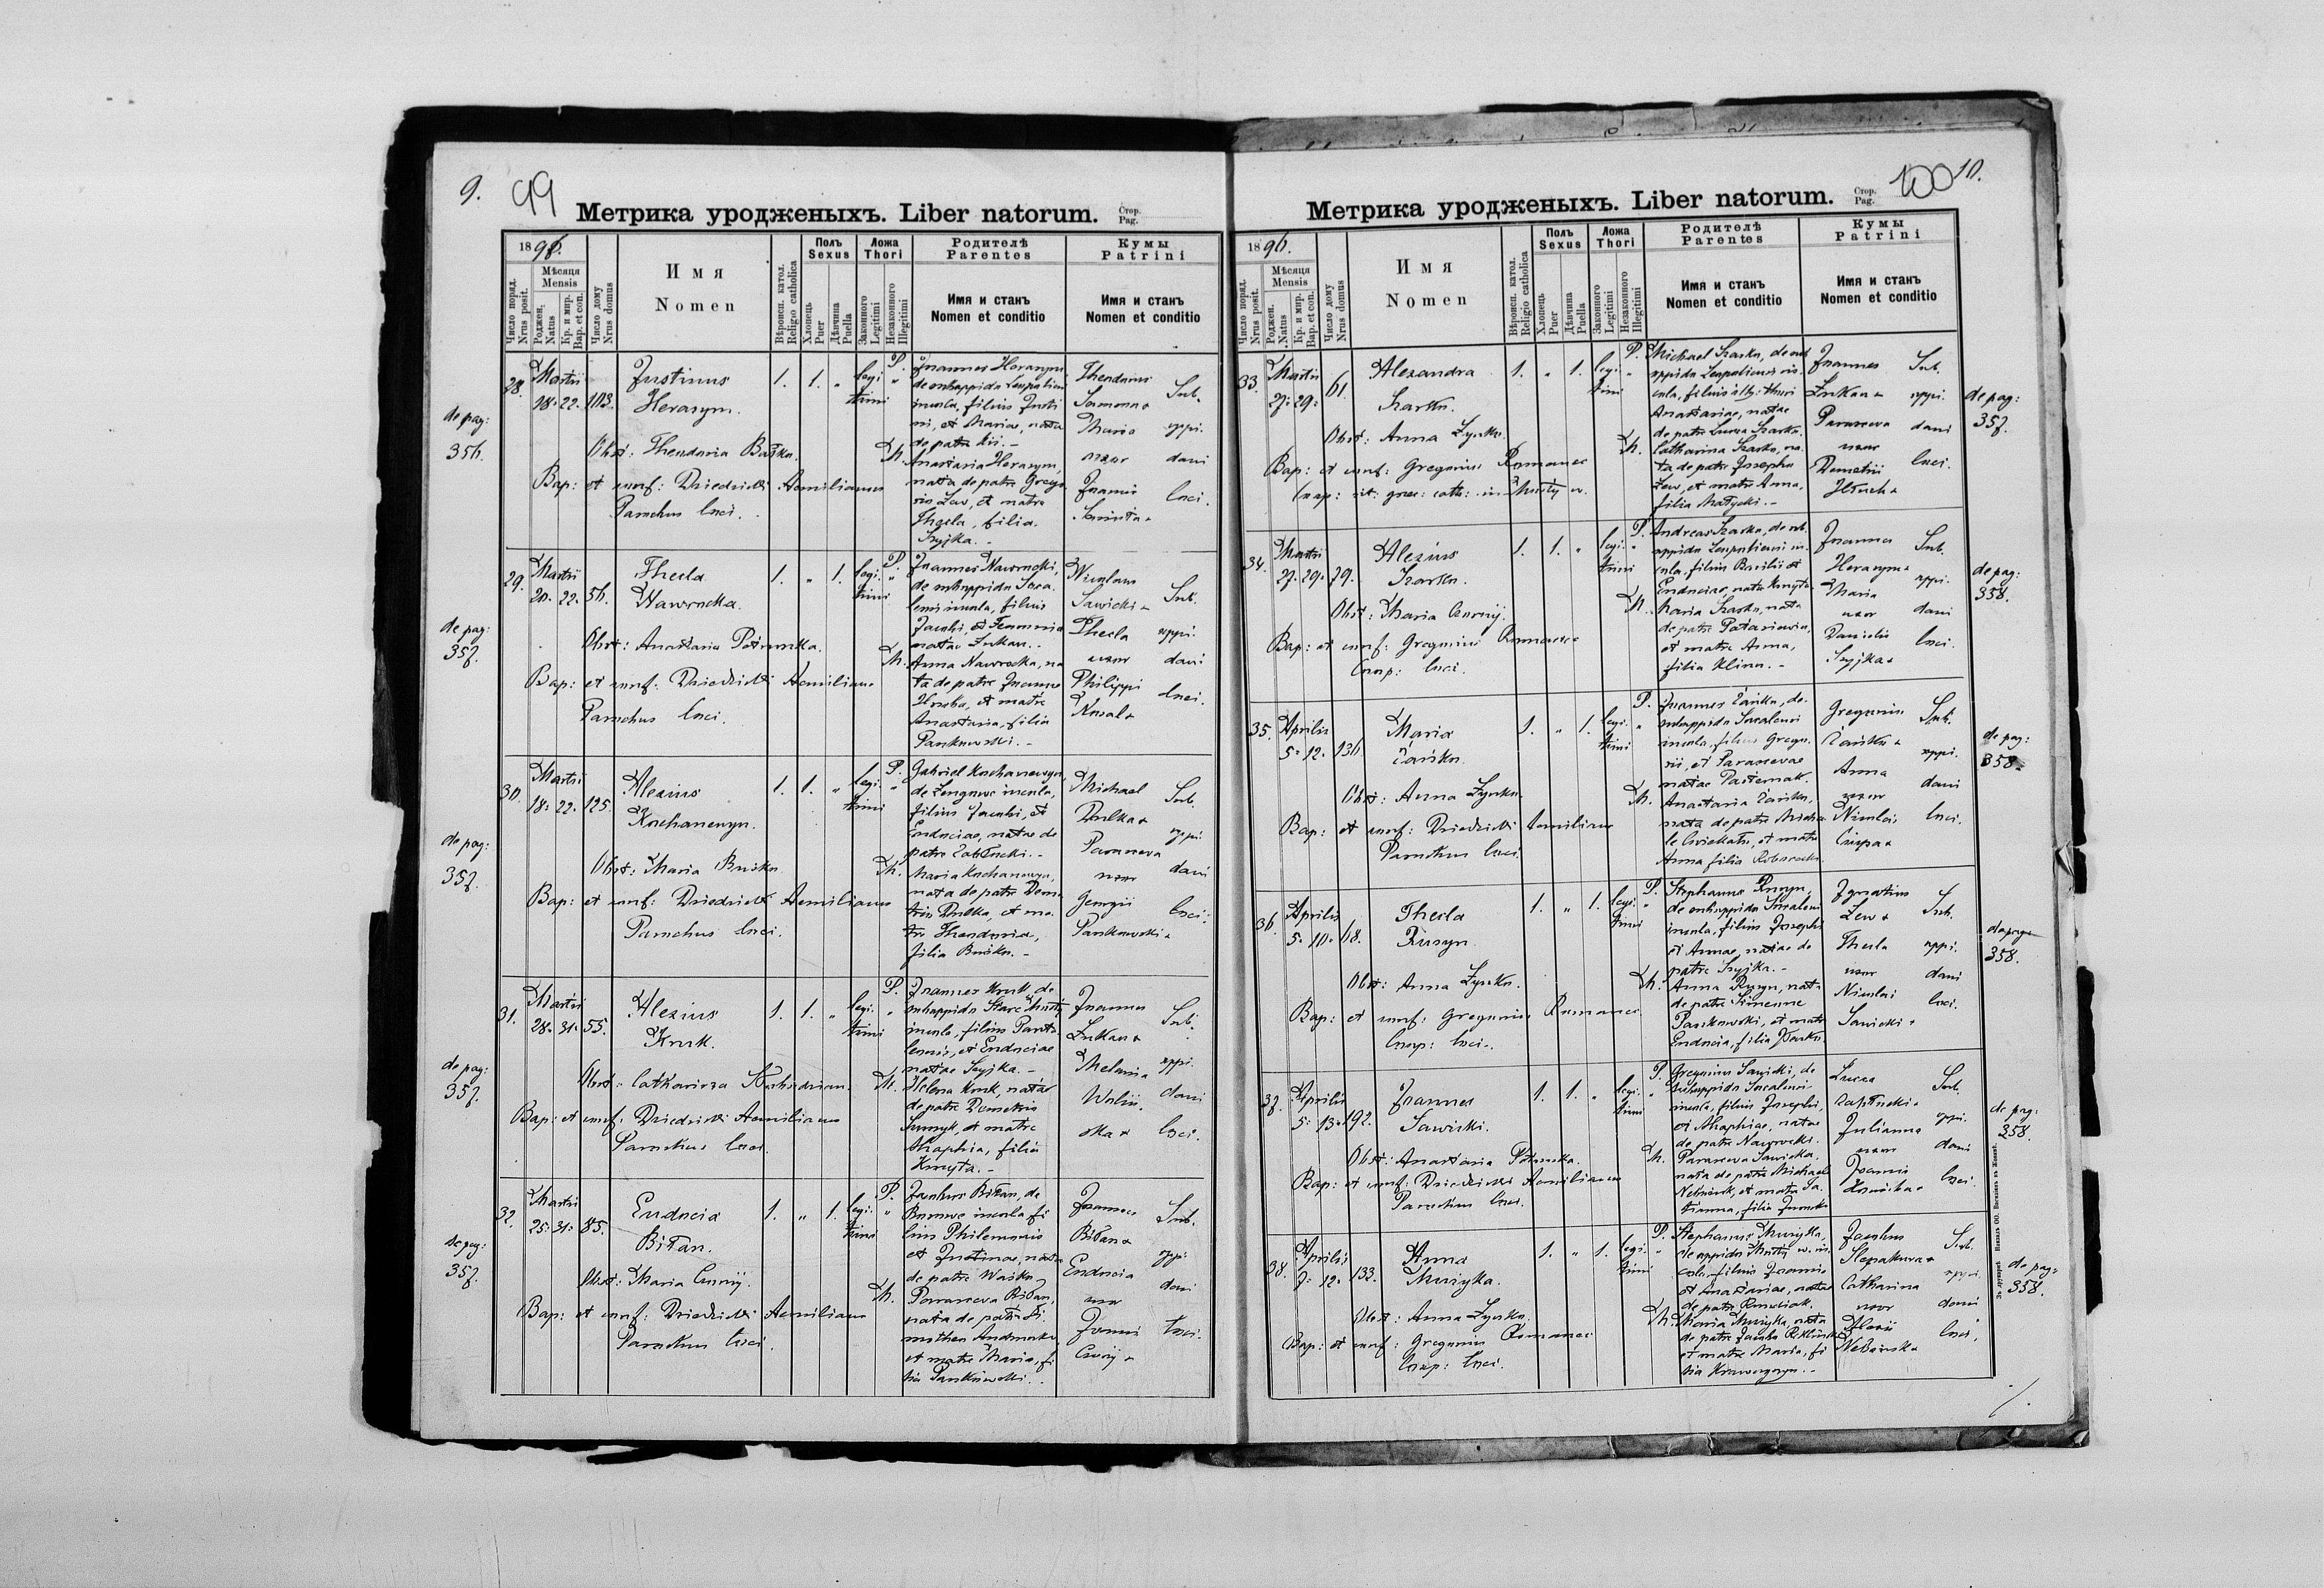 9.
99
Метрика уродженыхъ. Liber natorum.
Стор.
Pag.
1896.
Число поряд.
Nrus posit.
Мѣсяця
Mensis
Роджен.
Natus
Кр. и мир.
Bap. et con.
Число дому
Nrus domus
Имя
Nomen
Вѣроисп. катол.
Religio catholica
Полъ
Sexus
Хлопець
Puer
Дѣвчина
Puella
Ложа
Thori
Законного
Legitimi
Незаконного
Illegitimi
Родителѣ
Parentes
Имя и станъ
Nomen et conditio
Кумы
Patrini
Имя и станъ
Nomen et conditio
de pag:
356.
28. Martii
18. 22. 103.
Justinus
Herasym.
1. 1. " legi
timi "
Obst: Theodosia Baśko.
Bap: et conf: Dziedzicki Aemilianus
Parochus loci.
P. Joannes Herasym,
de subuppido Leopoliensi
incola, filius Justi
ni, et Mariae, nata
de patre
M. Anastasia Herasym,
nata de patre Grego
rio Lew, et matre
Thecla, filia
Szyjka. -
Theodorus
Maria
uxor
Joannis
Sub.
oppi.
dani
loci.
de pag:
357.
29. Martii
20. 22. 56.
Thecla
Nawrocka.
1. " 1. legi.
timi "
Obst: Anastasia
Bap: et conf: Dziedzicki Aemilianus
Parochus loci.
P. Joannes Nawrocki,
de subuppido Soca
lensi incola, filius
Jacobi, et
natae Lukan. -
M. Anna Nawrocka, na
ta de patre Joanne
et matre
Anastasia, filia
Pankowski. -
Nicolaus
Sawicki +
Thecla
uxor
Philippi
Kowal +
Sub.
oppi.
dani
loci.
de pag:
357.
30. Martii
18. 22. 125.
Alexius
Kochanewyn.
1. 1. " legi.
timi "
Obst: Maria Buśko
Bap: et conf: Dziedzicki Aemilianus
Parochus loci.
P. Gabriel Kochanewyn,
incola,
filius Jacobi, et
Eudociae, natae de
patre Zabłocki. -
M. Maria Kochanewyn,
nata de patre Deme
trio Dulka, et ma
tre Theodosia,
filia Buśko. -
Michael
Dulka +
Parasceva
uxor
Georgii
Pankowski +
Sub.
oppi
dani
loci.
de pag:
357.
31. Martii
28. 31. 55.
Alexius
Kruk.
1. 1. " legi.
timi "
Obst: Catharina
Bap: et conf: Dziedzicki Aemilianus
Parochus loci.
P. Joannes Kruk, de
subuppido Stare Mosty
incola, filius Panta
lemonis, et Eudociae
natae Szyjka. -
M. Helena Kruk, nata
de patre Demetrio
et matre
Agaphia, filia
Kmyta. -
Joannes
Lukan +
Melania
Wolin
ska +
Sub.
oppi.
dani
loci.
de pag:
357.
32. Martii
25. 31. 85.
Eudocia
Biłan.
1. " 1. legi.
timi "
Obst: Maria Czornij.
Bap: et conf: Dziedzicki Aemilianus
Parochus loci.
P. Jacobus Biłan, de
incola fi
lius Philemonis
et Justinae, nata
de patre Waśko
M. Parasceva Biłan,
nata de patre Ti
motheo Andrusko
et matre Maria, fi
lia Pankowski. -
Joannes
Biłan +
Eudocia
uxor
Joannis
Czornij +
Sub.
oppi
dani
loci.
100
10.
Метрика уродженыхъ. Liber natorum.
Стор.
Pag.
1896.
Число поряд.
Nrus posit.
Мѣсяця
Mensis
Роджен.
Natus
Кр. и мир.
Bap. et con.
Число дому
Nrus domus
Имя
Nomen
Вѣроисп. катол.
Religio catholica
Полъ
Sexus
Хлопець
Puer
Дѣвчина
Puella
Ложа
Thori
Законного
Legitimi
Незаконного
Illegitimi
Родителѣ
Parentes
Имя и станъ
Nomen et conditio
Кумы
Patrini
Имя и станъ
Nomen et conditio
33. Martii
27. 29. 61.
Alexandra
Szarko.
1. " 1. legi.
timi "
Obst: Anna Łysko.
Bap: et conf: Gregorius Romanec
Coop: rit. graec: cath: in Mosty w.
P. Michael Szarko, de sub
oppido Leopoliensi in
cola, filius
Anastasiae, natae
de patre Lucca Szarko.
M. Catharina Szarko, na
ta de patre Josepho
Lew, et matre Anna,
filia Małycki. -
Joannes
Lukan +
Parasceva
uxor
Demetrii
Sub.
oppi.
dani
loci.
de pag:
357.
34. Martii
27. 29. 79.
Alexius
Szarko.
1. 1. " legi.
timi "
Obst: Maria Czornij.
Bap: et conf: Gregorius Romanec
Coop: loci.
P. Andreas Szarko, de sub
oppido Leopoliensi in
cola, filius Basilii et
Eudociae, nata Kmyta
M. Maria Szarko, nata
de patre
et matre Anna,
filia Klim. -
Joannes
Herasym +
Maria
uxor
Danielis
Szyjka +
Sub.
oppi.
dani
loci.
de pag:
358.
35. Aprilis
5. 12. 136.
Maria
Zańko.
1. " 1. legi.
timi "
Obst: Anna Łysko.
Bap: et conf: Dziedzicki Aemilianus
Parochus loci.
P. Joannes Zańko, de
subuppido Socalensi
incola, filius Grego
rii, et Parascevae
natae Pasternak.
M. Anastasia Zańko,
nata de patre Micha
le et matre
Anna filia
Gregorius
Zańko +
Anna
uxor
Nicolai
Sub.
oppi.
dani
loci.
de pag:
358.
36. Aprilis
5. 10. 68.
Thecla
Rusyn.
1. " 1. legi.
timi "
Obst: Anna Łysko.
Bap: et conf: Gregorius Romanec
Coop: loci.
P. Stephanus Rusyn,
de subuppido Socalensi
incola, filius Josephi
et Annae, natae de
patre Szyjka. -
M. Anna Rusyn, nata
de patre Simeone
Pankowski, et matre
Eudocia, filia
Ignatius
Lew +
Thecla
uxor
Nicolai
Sawicki +
Sub.
oppi.
dani
loci.
de pag:
358.
37. Aprilis
5. 13. 192.
Joannes
Sawicki.
1. 1. " legi.
timi "
Obst: Anastasia
Bap: et conf: Dziedzicki Aemilianus
Parochus loci.
P. Gregorius Sawicki, de
subuppido Socalensi
incola, filius Josephi,
et Agaphiae, natae
de patre Nawrocki.
M. Parasceva Sawicka,
nata de patre Michael
et matre Ta
tianna, filia
Lucas
Julianna
uxor
Joannis
Sub.
oppi.
dani
loci.
de pag:
358.
38. Aprilis
7. 12. 133.
Anna
Muzyka.
1. " 1. legi.
timi "
Obst: Anna Łysko.
Bap: et conf: Gregorius Romanec
Coop: loci.
P. Stephanus Muzyka,
de oppido Mosty w. in
cola, filius Joannis
et Anastasiae, natae
de patre
M. Maria Muzyka, nata
de patre Jacobo
et matre Maria, fi
lia Krawczyszyn. -
Jacobus
Catharina
uxor
Alexii
Sub.
oppi.
dani
loci.
de pag:
358.
Зъ друкарнѣ и накладъ ОО. Василіянъ въ Жовкві.